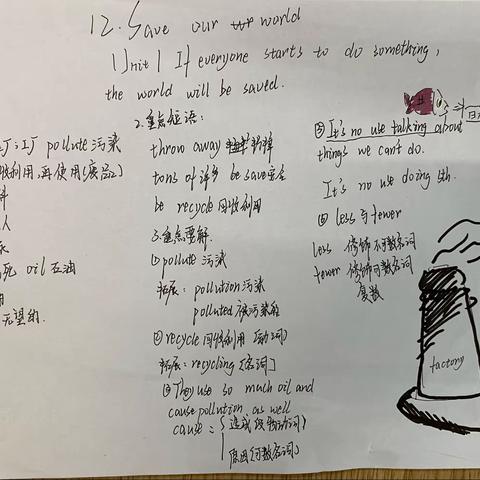 12. Save our world
Unit 1 If everyone starts to do something,
the world will be saved.
工厂 pollute 污染
收利用,再使用(废品)
人
死 oil 石油
用
无望的.
2.重点短语:
throw away
tons of 许多 be save 安全
be recycle 回收利用
3.重点要解.
① pollute 污染
拓展: pollution 污染
polluted 被污染的
② recycle 回收利用 (动词)
拓展: recycling [名词]
③ They use so much oil and
cause pollution as well
cause: 造成 (及物动词)
原因 (可数名词)
It's no use talking about
things we can't do.
It's no use doing sth.
less 与 fewer
less 修饰不可数名词
fewer 修饰可数名词
复数
factory